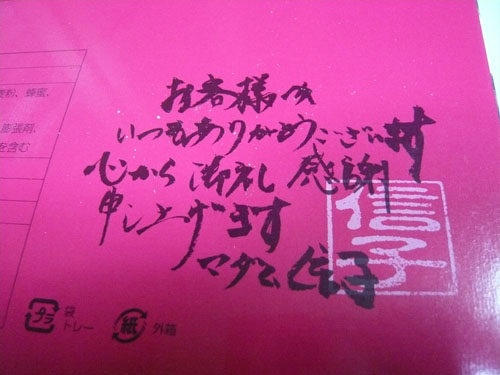 麦粉、蜂蜜、
膨張剤、
を含む
お客様方
いつもありがとうございます
心から御礼感謝
申し上げます
マダム信子
信子
プラ
袋
トレー
紙
外箱